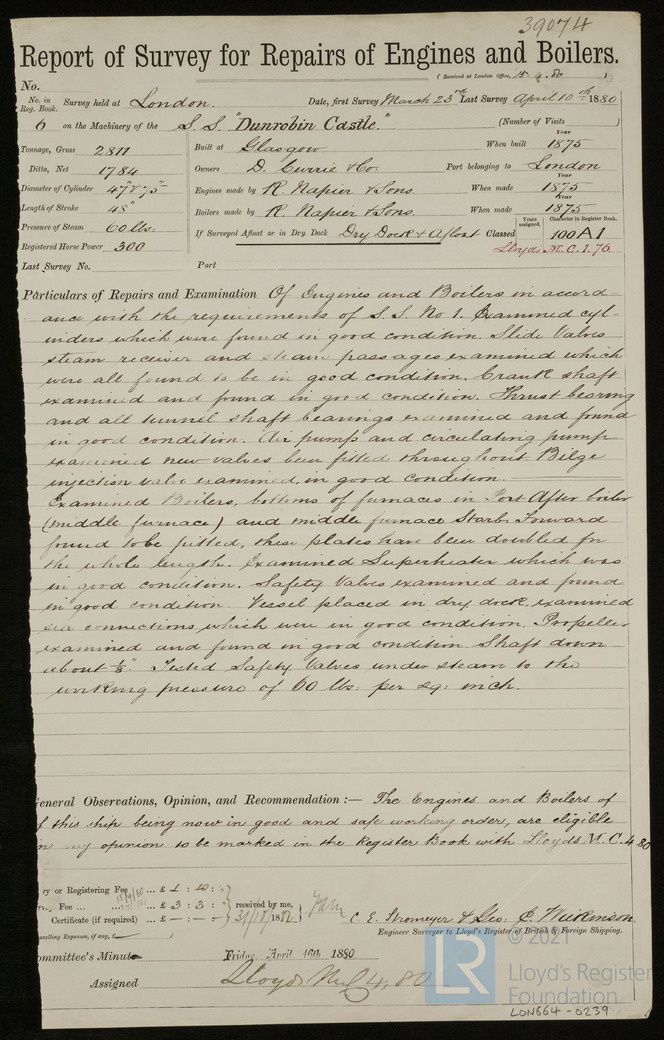 39074
Report of Survey for Repairs of Engines and Boilers.
(Received at London Office, 15.4.80 )
No.
No. in Reg. Book. Survey held at London. Date, first Survey March 23rd Last Survey April 10th 1880
6 on the Machinery of the S.S. "Dunrobin Castle." (Number of Visits )
Tonnage, Gross 2811 Built at Glasgow When built Year 1875
Ditto, Net 1784 Owners D. Currie & Co. Port belonging to London
Diameter of Cylinder 47 & 75" Engines made by R. Napier & Sons. When made Year 1875
Length of Stroke 48" Boilers made by R. Napier & Sons. When made Year 1875
Pressure of Steam 60 lbs. If Surveyed Afloat or in Dry Dock Dry Dock & Afloat Classed Years assigned. Character in Register Book. 100 A1
Registered Horse Power 300 Lloyds M.C. 1.76
Last Survey No. Port
Particulars of Repairs and Examination Of Engines and Boilers in accord-
ance with the requirements of S.S. No 1. Examined cyl-
inders which were found in good condition. Slide Valves
steam receiver and steam passages examined which
were all found to be in good condition. Crank shaft
examined and found in good condition. Thrust bearing
and all tunnel shaft bearings examined and found
in good condition. Air pump and circulating pump
examined new valves been fitted throughout. Bilge
injection valve examined, in good condition.
Examined Boilers, bottoms of furnaces in Port After boiler
(middle furnace) and middle furnace Starb. Forward
found to be pitted, these plates have been doubled for
the whole length. Examined Superheater which was
in good condition. Safety Valves examined and found
in good condition. Vessel placed in dry dock, examined
sea connections which were in good condition. Propeller
examined and found in good condition. Shaft down
about 1/8". Tested Safety Valves under steam to the
working pressure of 60 lbs. per sq: inch.
General Observations, Opinion, and Recommendation:— The Engines and Boilers of
f this ship being now in good and safe working order, are eligible
n my opinion to be marked in the Register Book with Lloyds M.C. 4.80
ry or Registering Fee ... £ 1 : 10 :
Fee ... £ 3 : 3 : received by me,
Certificate (if required) ... £ — : — : — 188
velling Expenses, if any, £
C. E. Stromeyer & Geo: C. Wilkinson
Engineer Surveyor to Lloyd's Register of British & Foreign Shipping.
ommittee's Minute Friday, April 16th 1880
Assigned Lloyds M.C 4.80
LR © 2021
Lloyd's Register
Foundation
LON664-0239